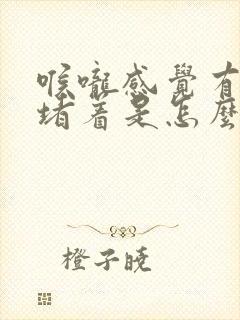 喉嚨感覺有
堵着是怎麼
橙子曉